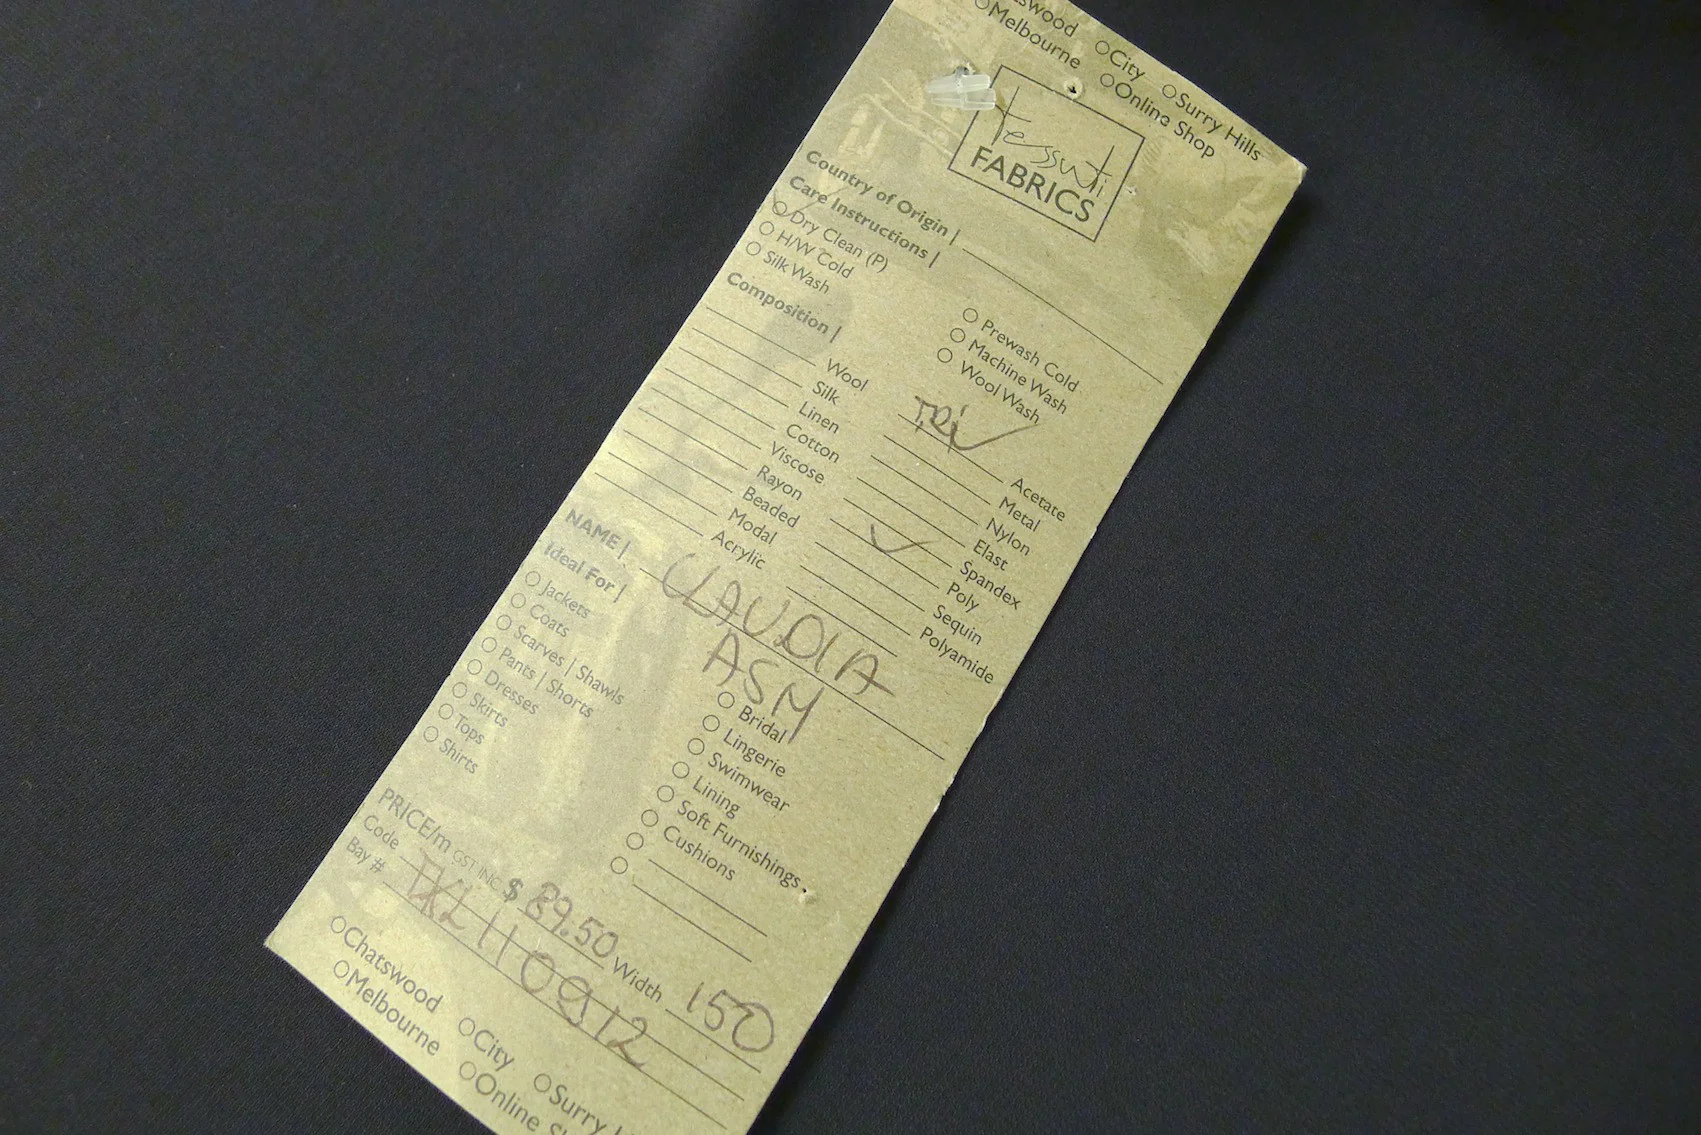 Chatswood
City
Surry Hills
Melbourne
Online Shop
Tessuti
FABRICS
Country of Origin |
Care Instructions |
Dry Clean (P)
Prewash Cold
H/W Cold
Machine Wash
Silk Wash
Wool Wash
Composition |
Wool
TRI Acetate
Silk
Metal
Linen
Nylon
Cotton
Elast
Viscose
Spandex
Rayon
Poly
Beaded
Sequin
Modal
Polyamide
Acrylic
NAME | CLAUDIA
ASM
Ideal For |
Jackets
Bridal
Coats
Lingerie
Scarves | Shawls
Swimwear
Pants | Shorts
Lining
Dresses
Soft Furnishings
Skirts
Cushions
Tops
Shirts
PRICE/m GST INC. $ 89.50 Width 150
Code
Bay #
Chatswood
City
Surry
Melbourne
Online